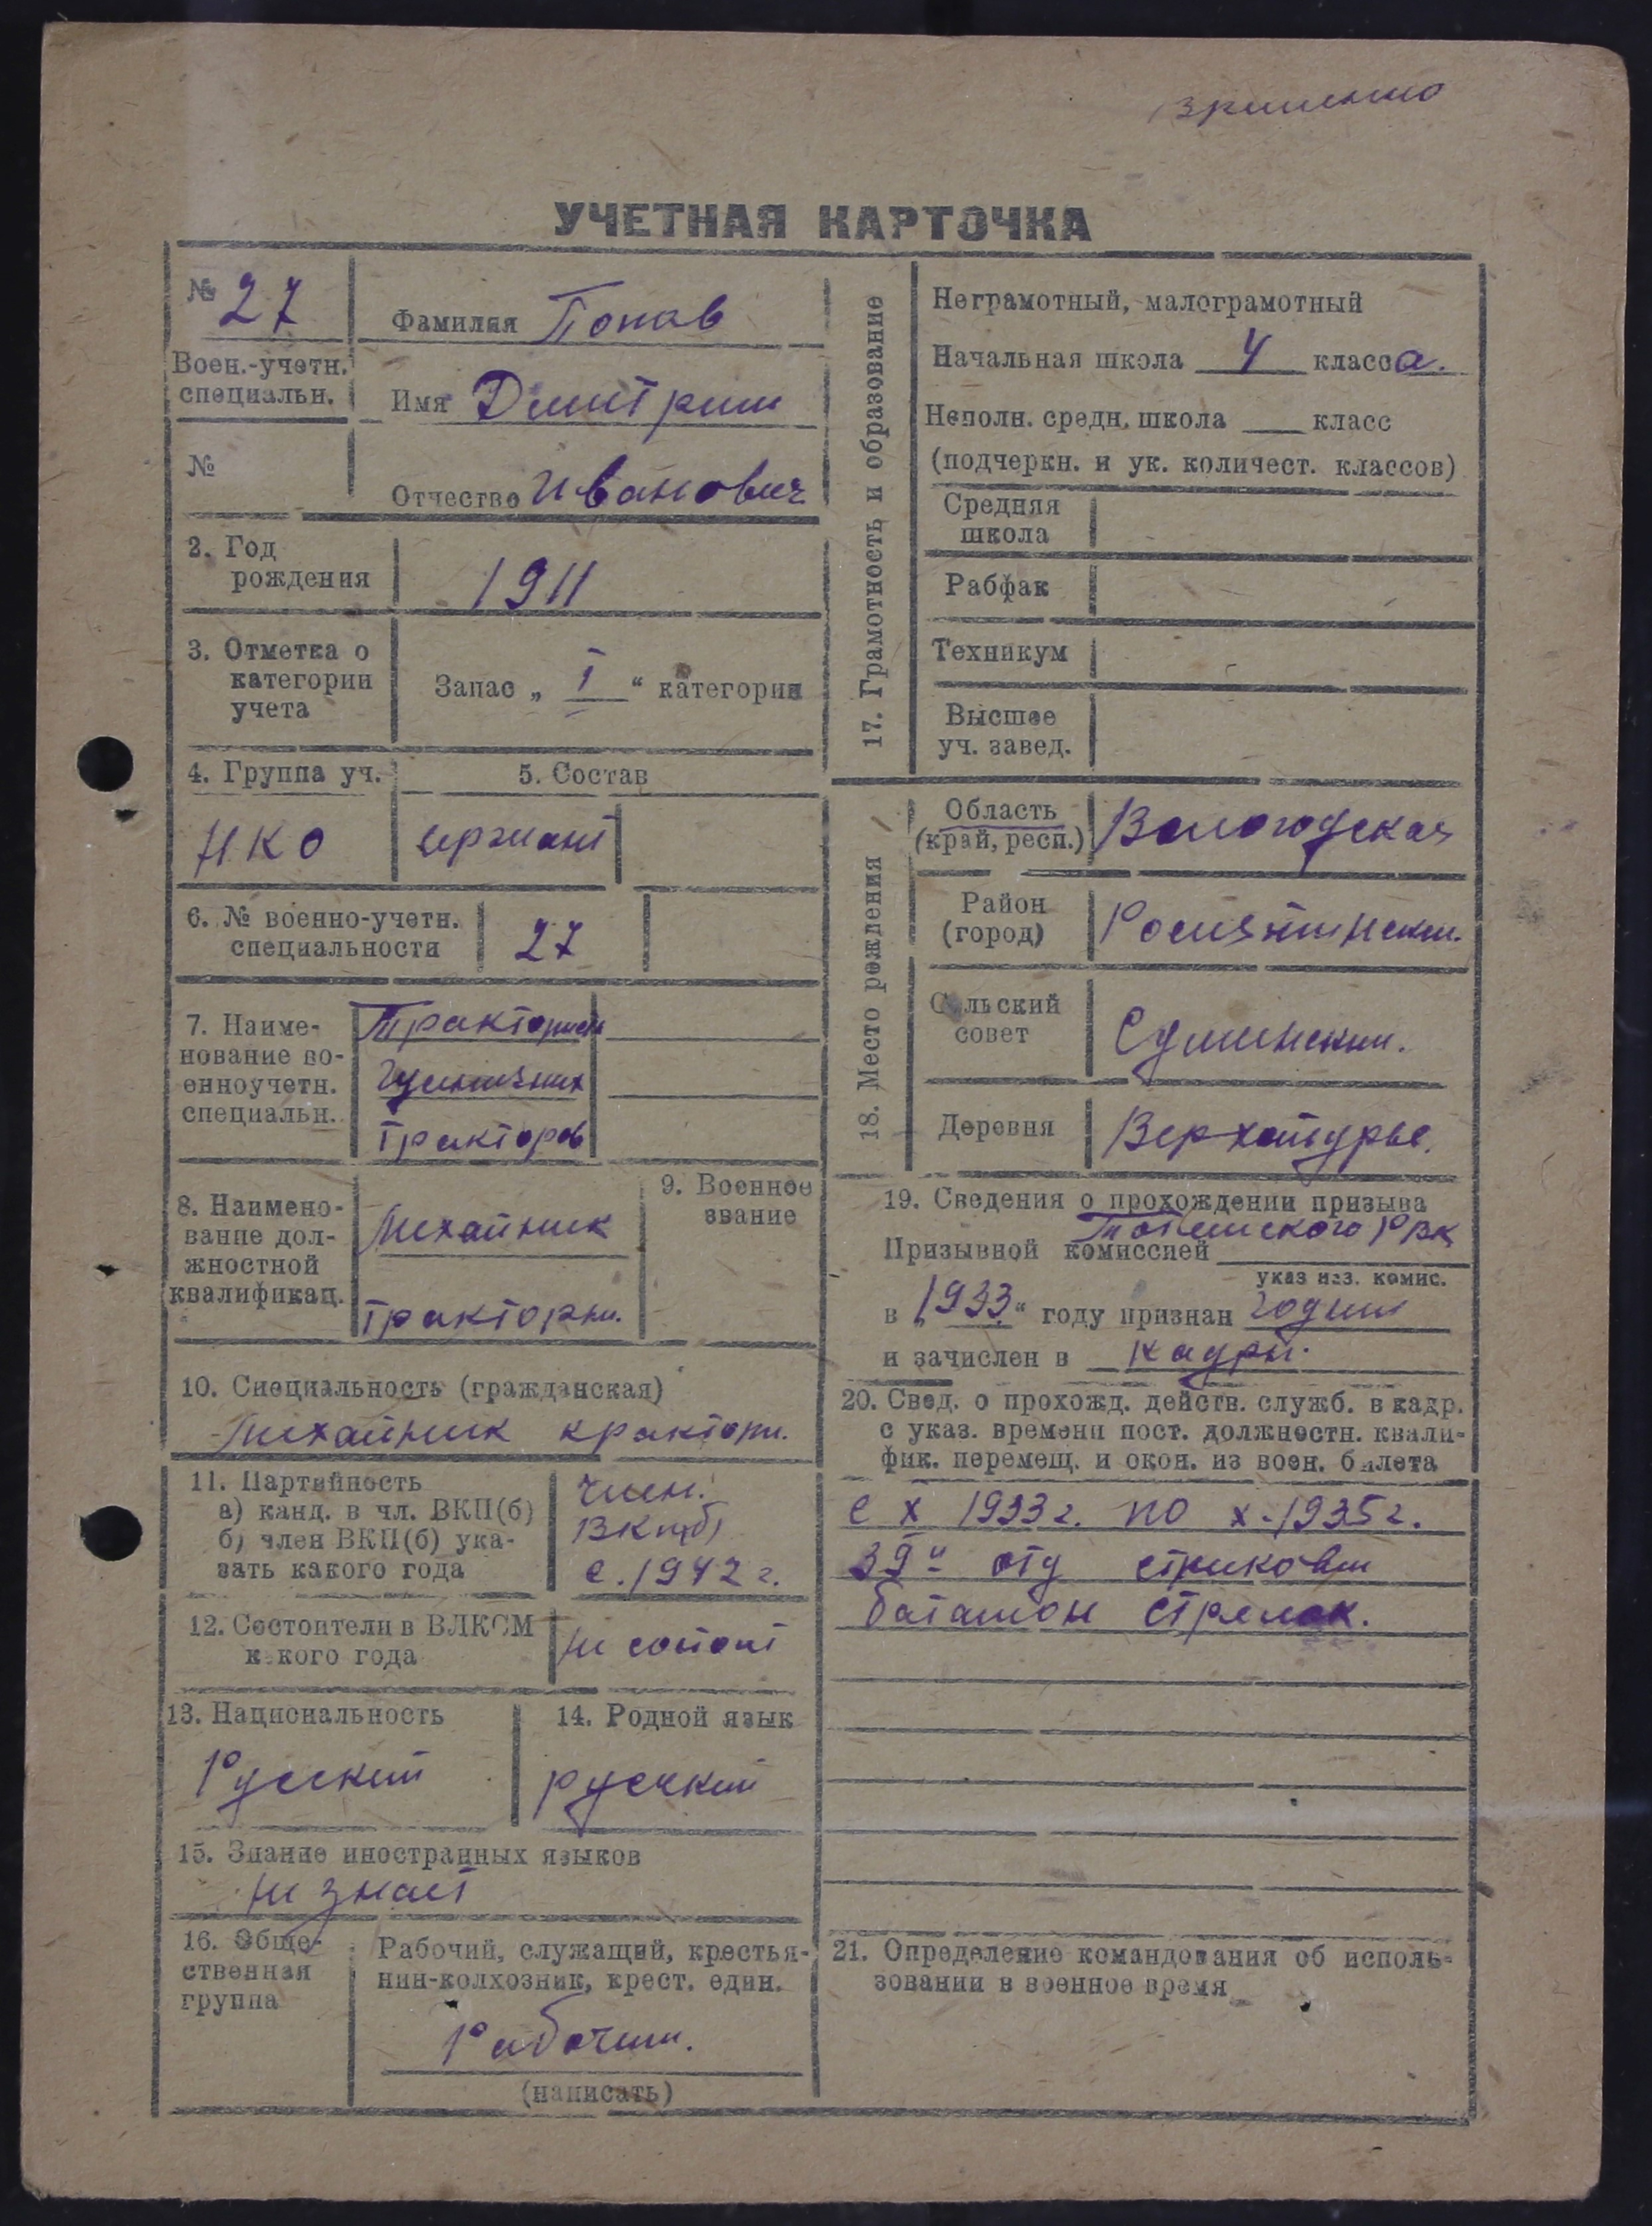 УЧЕТНАЯ КАРТОЧКА
№ 27
Воен.-учетн.
специальн.
№
Фамилия Попов
Имя Дмитрии
Отчество Иванович
2. Год
рождения
1911
3. Отметка о
категории
учета
Запас „ I “ категории
4. Группа уч.
НКО
5. Состав
сержант
6. № военно-учетн.
специальности
27
7. Наиме-
нование во-
енноучетн.
специальн.
Тракторист
гусиничних
тракторов
8. Наимено-
вание дол-
жностной
квалификац.
Механик
тракторн.
9. Военное
звание
10. Специальность (гражданская)
Механик
11. Партийность
а) канд. в чл. ВКП(б)
б) член ВКП(б) ука-
зать какого года
член.
ВКП(б)
с. 1942 г.
12. Состоит ли в ВЛКСМ
какого года
не состоит
13. Национальность
Русский
14. Родной язык
русский
15. Знание иностранных языков
не знает
16. Обще-
ственная
группа
Рабочий, служащий, крестья-
нин-колхозник, крест. един.
Рабочий.
(написать)
17. Грамотность и образование
Неграмотный, малограмотный
Начальная школа 4 класса.
Неполн. средн. школа ___ класс
(подчеркн. и ук. количест. классов)
Средняя
школа
Рабфак
Техникум
Высшее
уч. завед.
18. Место рождения
Область
(край, респ.)
Вологодская
Район
(город)
Рослятинский.
Сельский
совет
Деревня
19. Сведения о прохождении призыва
Призывной комиссией Тотемского РВК
указ наз. комис.
в „ 1933 “ году признан годим
и зачислен в кадры.
20. Свед. о прохожд. действ. служб. в кадр.
с указ. времени пост. должностн. квали-
фик. перемещ. и окон. из воен. билета
с X 1933 г. по X. 1935 г.
39й отд стрелковий
баталион стрелок.
21. Определение командования об исполь-
зовании в военное время